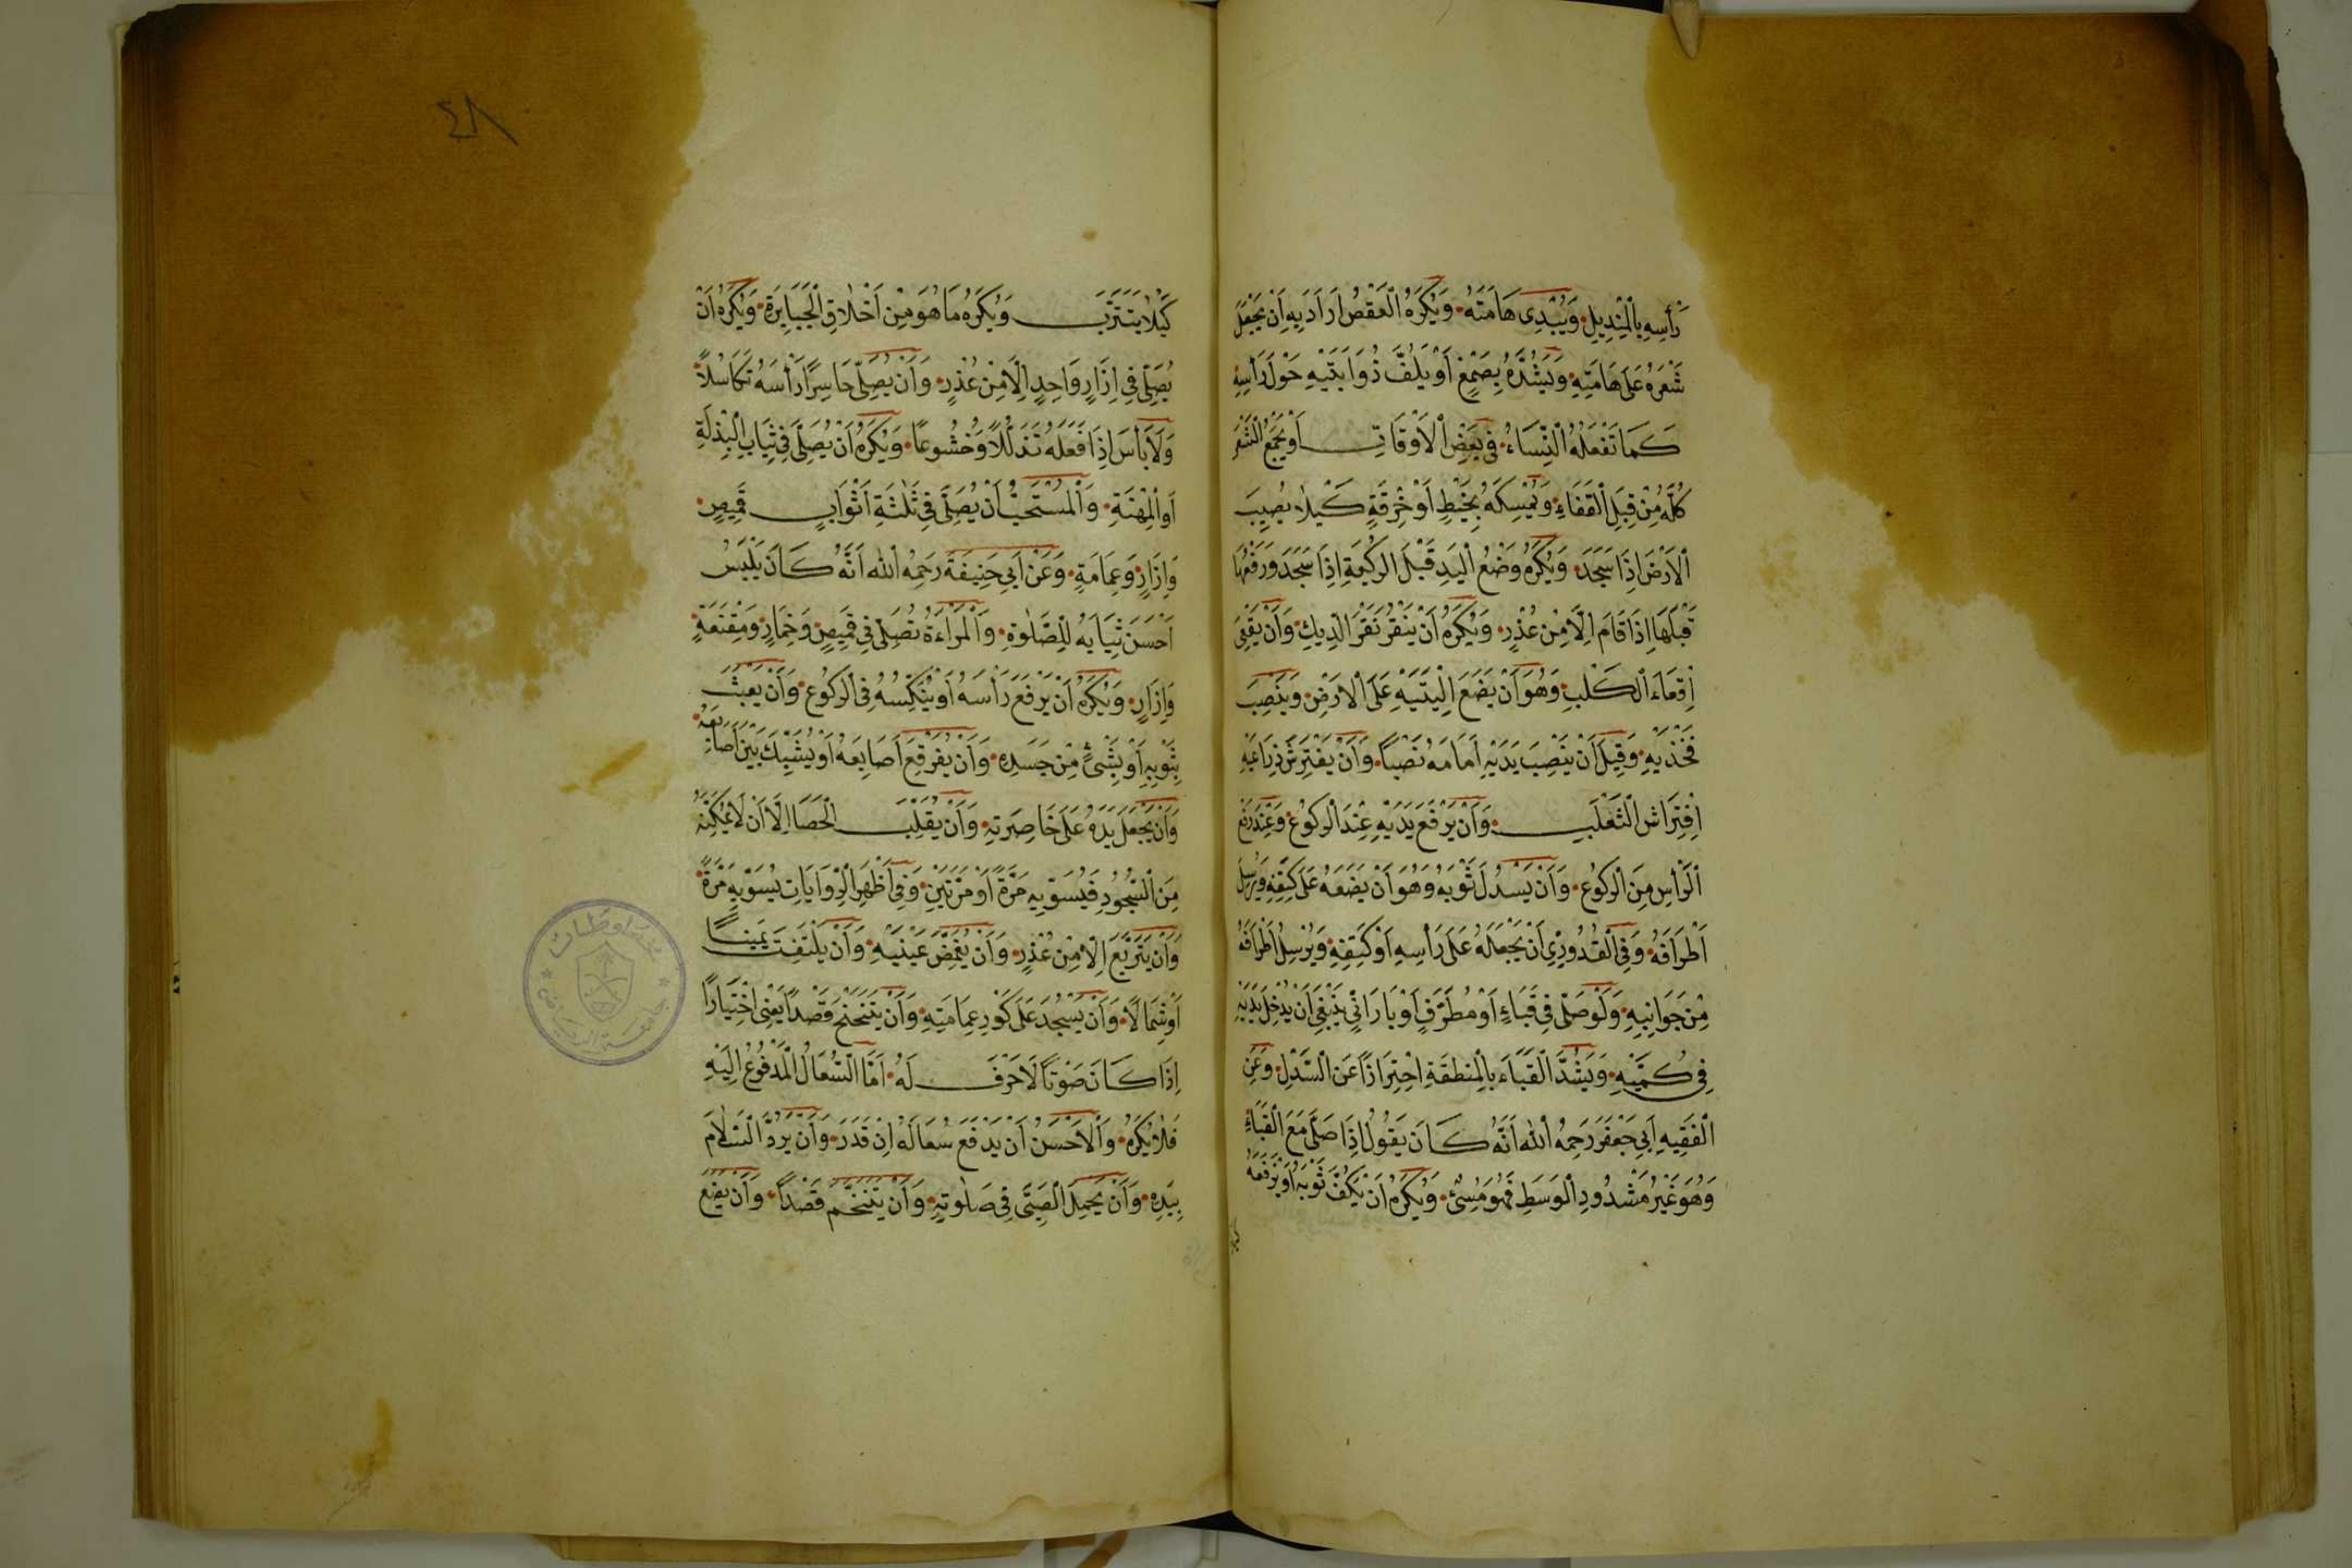 رَأْسِهِ بِالْمِنْدِيلِ وَيُبْدِى هَامَتَهُ وَيُكْرَهُ الْعَقْصُ اَرَادَ بِهِ اَنْ يَجْعَلَ
شَعْرَهُ عَلَى هَامَتِهِ وَيَشُدَّهُ بِصَمْغٍ اَوْ يَلُفَّ ذُوَابَتَيْهِ حَوْلَ رَأْسِهِ
كَمَا تَفْعَلُهُ النِّسَاءُ فِى بَعْضِ الْاَوْقَاتِ اَوْ يَجْمَعَ الشَّعْرَ
كُلَّهُ مِنْ قِبَلِ الْقَفَاءِ وَيُمْسِكَهُ بِخَيْطٍ اَوْ خِرْقَةٍ كَيْلَا يُصِيبَ
الْاَرْضَ اِذَا سَجَدَ وَيُكْرَهُ وَضْعُ الْيَدِ قَبْلَ الرُّكْبَةِ اِذَا سَجَدَ وَرَفْعُهَا
قَبْلَهَا اِذَا قَامَ اِلَّا مِنْ عُذْرٍ وَيُكْرَهُ اَنْ يَنْقُرَ نَقْرَ الدِّيكِ وَاَنْ يُقْعِىَ
اِقْعَاءَ الْكَلْبِ وَهُوَ اَنْ يَضَعَ اِلْيَتَيْهِ عَلَى الْاَرْضِ وَيَنْصِبَ
فَخْذَيْهِ وَقِيلَ اَنْ يَنْصِبَ يَدَيْهِ اَمَامَهُ نَصْبًا وَاَنْ يَفْتَرِشَ ذِرَاعَيْهِ
اِفْتِرَاشَ الثَّعْلَبِ وَاَنْ يَرْفَعَ يَدَيْهِ عِنْدَ الرُّكُوعِ وَعِنْدَ رَفْعِ
الرَّأْسِ مِنَ الرُّكُوعِ وَاَنْ يَسْدُلَ ثَوْبَهُ وَهُوَ اَنْ يَضَعَهُ عَلَى كَتِفِهِ وَيُرْسِلَ
اَطْرَافَهُ وَفِى الْقُدُورِىِّ اَنْ يَجْعَلَهُ عَلَى رَأْسِهِ اَوْ كَتِفِهِ وَيُرْسِلَ اَطْرَافَهُ
مِنْ جَوَانِبِهِ وَلَوْ صَلَّى فِى قَبَاءٍ اَوْ مُطَرَّفٍ اَوْ بَارَانِىٍّ يَنْبَغِى اَنْ يُدْخِلَ يَدَيْهِ
فِى كُمَّيْهِ وَيَشُدَّ الْقَبَاءَ بِالْمِنْطَقَةِ اِحْتِرَازًا عَنِ السَّدْلِ وَعَنِ
الْفَقِيهِ اَبِى جَعْفَرَ رَحِمَهُ اللّٰهُ اَنَّهُ كَانَ يَقُولُ اِذَا صَلَّى مَعَ الْقَبَاءِ
وَهُوَ غَيْرُ مَشْدُودِ الْوَسَطِ فَهُوَ مُسِئٌ وَيُكْرَهُ اَنْ يَكُفَّ ثَوْبَهُ اَوْ يَرْفَعَهُ
٤٨
كَيْلَا يَتَتَرَّبَ وَيُكْرَهُ مَا هُوَ مِنْ اَخْلَاقِ الْجَبَابِرَةِ وَيُكْرَهُ اَنْ
يُصَلِّىَ فِى اِزَارٍ وَاحِدٍ اِلَّا مِنْ عُذْرٍ وَاَنْ يُصَلِّىَ حَاسِرًا رَأْسَهُ تَكَاسُلًا
وَلَا بَأْسَ اِذَا فَعَلَهُ تَذَلُّلًا وَخُشُوعًا وَيُكْرَهُ اَنْ يُصَلِّىَ فِى ثِيَابِ الْبِذْلَةِ
اَوِ الْمِهْنَةِ وَالْمُسْتَحَبُّ اَنْ يُصَلِّىَ فِى ثَلٰثَةِ اَثْوَابٍ قَمِيصٍ
وَاِزَارٍ وَعِمَامَةٍ وَعَنْ اَبِى حَنِيفَةَ رَحِمَهُ اللّٰهُ اَنَّهُ كَانَ يَلْبَسُ
اَحْسَنَ ثِيَابِهِ لِلصَّلٰوةِ وَالْمَرْاَةُ تُصَلِّى فِى قَمِيصٍ وَخِمَارٍ وَمِقْنَعَةٍ
وَاِزَارٍ وَيُكْرَهُ اَنْ يَرْفَعَ رَأْسَهُ اَوْ يُنَكِّسَهُ فِى الرُّكُوعِ وَاَنْ يَعْبَثَ
بِثَوْبِهِ اَوْ بِشَىْءٍ مِنْ جَسَدِهِ وَاَنْ يُفَرْقِعَ اَصَابِعَهُ اَوْ يُشَبِّكَ بَيْنَ اَصَابِعِهِ
وَاَنْ يَجْعَلَ يَدَهُ عَلَى خَاصِرَتِهِ وَاَنْ يُقَلِّبَ الْحَصَا اِلَّا اَنْ لَا يُمْكِنَهُ
مِنَ السُّجُودِ فَيُسَوِّيهِ مَرَّةً اَوْ مَرَّتَيْنِ وَفِى اَظْهَرِ الرِّوَايَاتِ يُسَوِّيهِ مَرَّةً
وَاَنْ يَتَرَبَّعَ اِلَّا مِنْ عُذْرٍ وَاَنْ يُغَمِّضَ عَيْنَيْهِ وَاَنْ يَلْتَفِتَ يَمِينًا
اَوْ شِمَالًا وَاَنْ يَسْجُدَ عَلَى كَوْرِ عِمَامَتِهِ وَاَنْ يَتَنَحْنَحَ قَصْدًا يَعْنِى اخْتِيَارًا
اِذَا كَانَ صَوْتًا لَا حَرْفَ لَهُ اَمَّا السُّعَالُ الْمَدْفُوعُ اِلَيْهِ
فَلَا يُكْرَهُ وَالْاَحْسَنُ اَنْ يَدْفَعَ سُعَالَهُ اِنْ قَدَرَ وَاَنْ يَرُدَّ السَّلَامَ
بِيَدِهِ وَاَنْ يَحْمِلَ الصَّبِىَّ فِى صَلٰوتِهِ وَاَنْ يَتَنَخَّمَ قَصْدًا وَاَنْ يَضَعَ
جامعة الرياض
مخطوطات